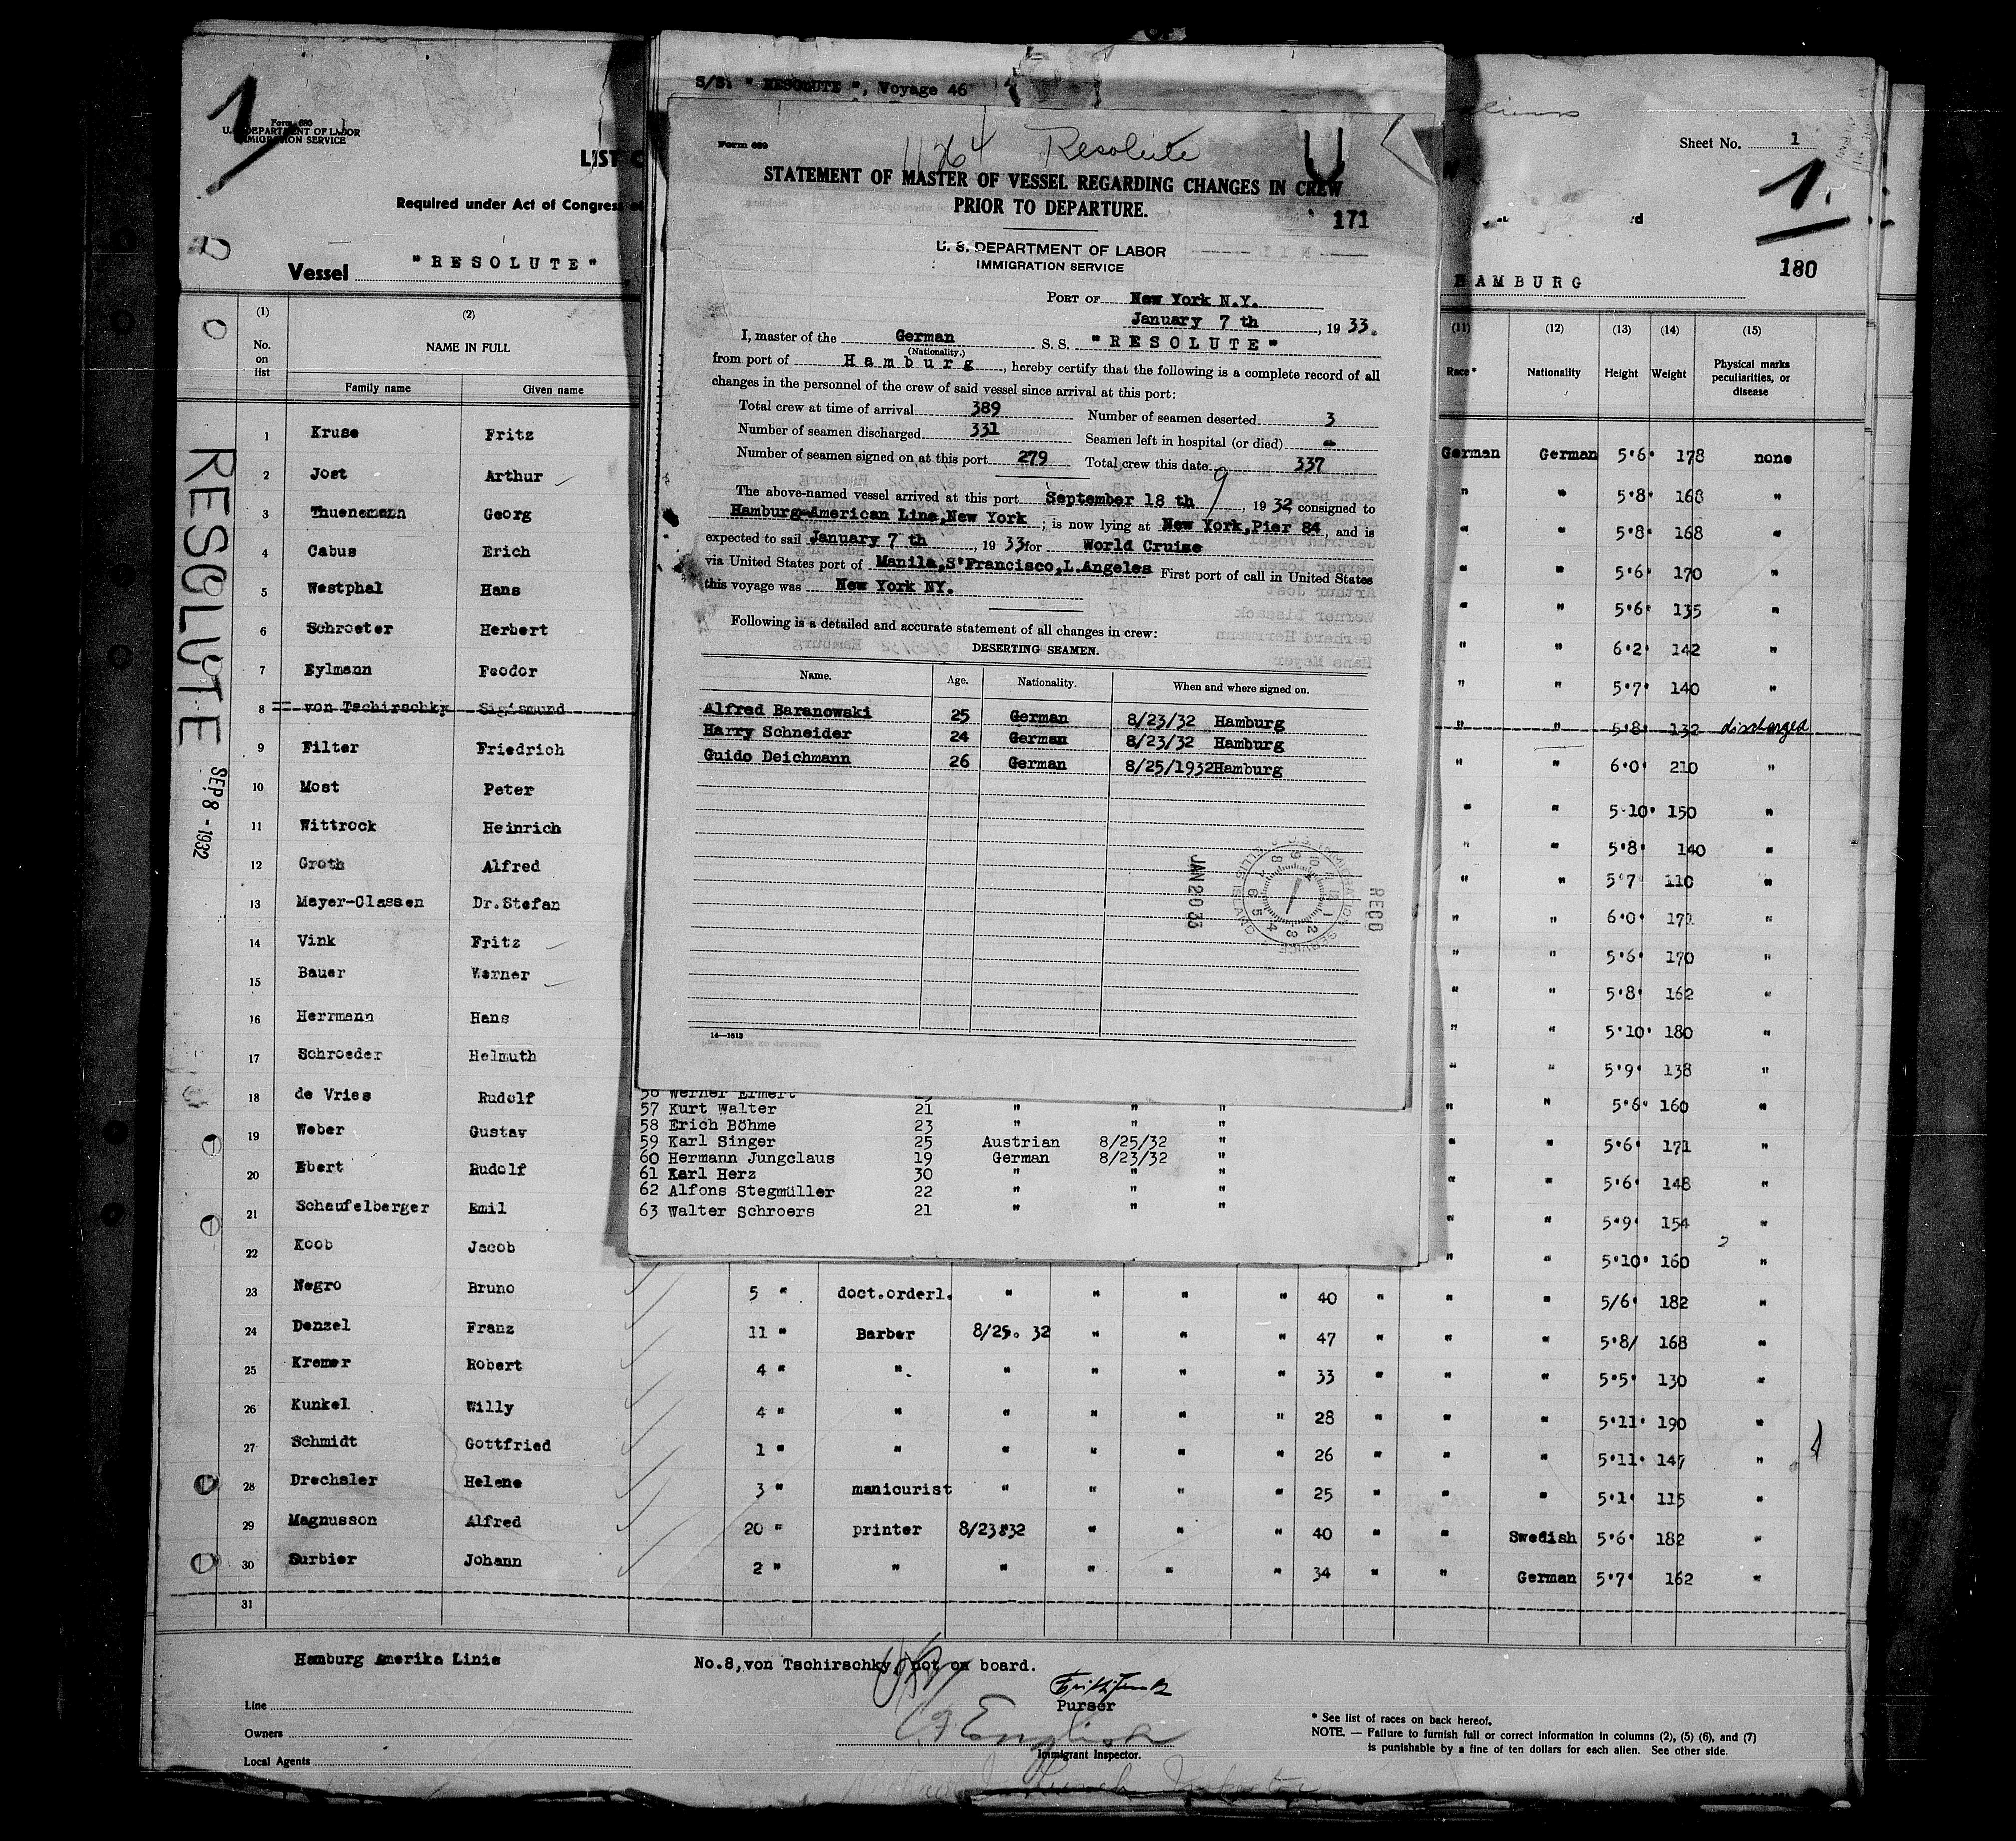 S/S. " RESOLUTE ", Voyage 46
1
Form 680
U. S. DEPARTMENT OF LABOR
IMMIGRATION SERVICE
LIST
Required under Act of Congress
Vessel "RESOLUTE"
Sheet No. 1
1.
HAMBURG
180
RESOLUTE
SEP 8 - 1932
Form 689
11264 Resolute
STATEMENT OF MASTER OF VESSEL REGARDING CHANGES IN CREW
PRIOR TO DEPARTURE.
171
U. S. DEPARTMENT OF LABOR
IMMIGRATION SERVICE
PORT OF New York N.Y.
January 7 th, 1933.
I, master of the German S. S. "RESOLUTE"
(Nationality.)
from port of Hamburg, hereby certify that the following is a complete record of all
changes in the personnel of the crew of said vessel since arrival at this port:
Total crew at time of arrival 389 Number of seamen deserted 3
Number of seamen discharged 331 Seamen left in hospital (or died) -
Number of seamen signed on at this port 279 Total crew this date 337
9
The above-named vessel arrived at this port September 18 th, 1932, consigned to
Hamburg-American Line, New York; is now lying at New York, Pier 84, and is
expected to sail January 7 th, 1933 for World Cruise
via United States port of Manila, S'Francisco, L.Angeles First port of call in United States
this voyage was New York NY.
Following is a detailed and accurate statement of all changes in crew:
DESERTING SEAMEN.
Name. Age. Nationality. When and where signed on.
Alfred Baranowski 25 German 8/23/32 Hamburg
Harry Schneider 24 German 8/23/32 Hamburg
Guido Deichmann 26 German 8/25/1932 Hamburg
JAN 20 33
RECD
IMMIGRATION SERVICE
ELLIS ISLAND
14—1613
56 Werner Ermert
57 Kurt Walter 21 " " "
58 Erich Böhme 23 " " "
59 Karl Singer 25 Austrian 8/25/32 "
60 Hermann Jungclaus 19 German 8/23/32 "
61 Karl Herz 30 " " "
62 Alfons Stegmüller 22 " " "
63 Walter Schroers 21 " " "
(1) (2) (11) (12) (13) (14) (15)
No. on list NAME IN FULL Race* Nationality Height Weight Physical marks peculiarities, or disease
Family name Given name
1 Kruse Fritz German German 5'6' 178 none
2 Jost Arthur " " 5'8' 168 "
3 Thuenemann Georg " " 5'8' 168 "
4 Cabus Erich " " 5'6' 170 "
5 Westphal Hans " " 5'6' 135 "
6 Schroeter Herbert " " 6'2' 142 "
7 Eylmann Feodor " " 5'7' 140 "
8 von Tschirschky Sigismund " " 5'8' 132 discharged
9 Filter Friedrich " " 6'0' 210 "
10 Most Peter " " 5'10' 150 "
11 Wittrock Heinrich " " 5'8' 140 "
12 Groth Alfred " " 5'7' 110 "
13 Mayer-Classen Dr.Stefan " " 6'0' 171 "
14 Vink Fritz " " 5'6' 170 "
15 Bauer Werner " " 5'8' 162 "
16 Herrmann Hans " " 5'10' 180 "
17 Schroeder Helmuth " " 5'9' 138 "
18 de Vries Rudolf " " 5'6' 160 "
19 Weber Gustav " " 5'6' 171 "
20 Ebert Rudolf " " 5'6' 148 "
21 Schaufelberger Emil " " 5'9' 154 "
22 Koob Jacob " " 5'10' 160 "
23 Negro Bruno 5 " doct.orderl. " " " " 40 " " " 5/6' 182 "
24 Denzel Franz 11 " Barber 8/25. 32 " " " 47 " " " 5'8/ 168 "
25 Kremer Robert 4 " " " " " " 33 " " " 5'5' 130 "
26 Kunkel Willy 4 " " " " " " 28 " " " 5'11' 190 "
27 Schmidt Gottfried 1 " " " " " " 26 " " " 5'11' 147 "
28 Drechsler Helene 3 " manicurist " " " " 25 " " " 5'1' 115 "
29 Magnusson Alfred 20 " printer 8/23/32 " " " 40 " " Swedish 5'6' 182 "
30 Surbier Johann 2 " " " " " " 34 " " German 5'7' 162 "
31
Hamburg Amerika Linie
No.8,von Tschirschky, not on board.
Purser
Line
Owners
Local Agents
English
Immigrant Inspector.
* See list of races on back hereof.
NOTE. — Failure to furnish full or correct information in columns (2), (5) (6), and (7)
is punishable by a fine of ten dollars for each alien. See other side.